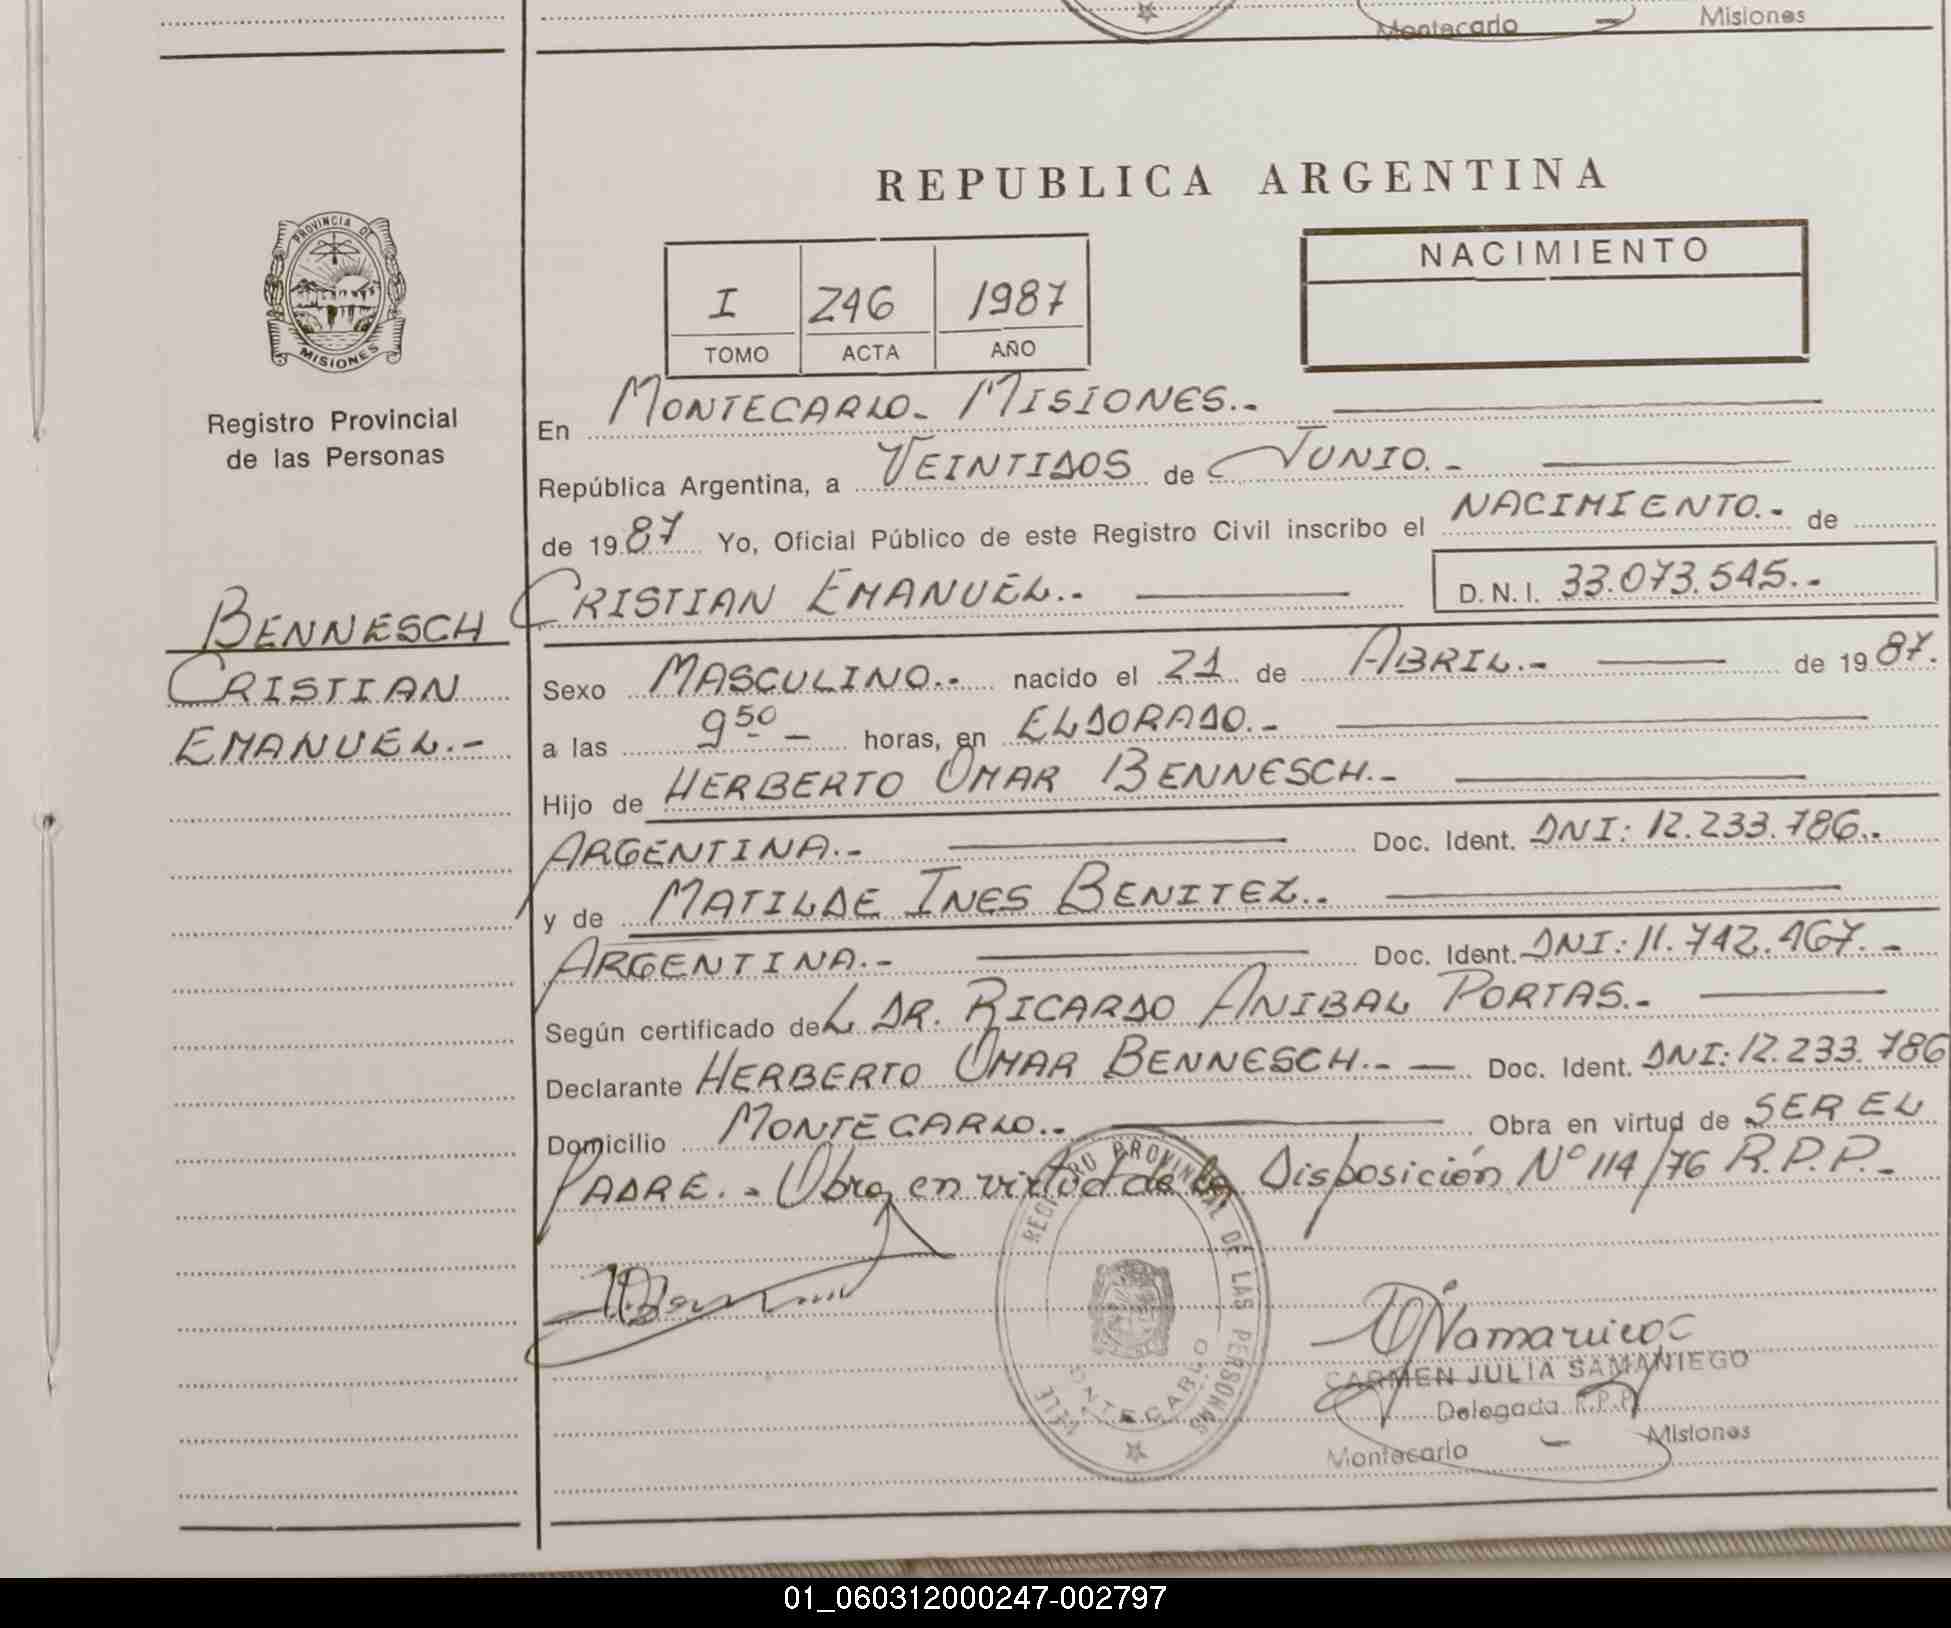 Montecarlo - Misiones
REPUBLICA ARGENTINA
PROVINCIA DE
MISIONES
Registro Provincial
de las Personas
I 246 1987
TOMO ACTA AÑO
NACIMIENTO
En MONTECARLO- MISIONES.-
República Argentina, a VEINTIDOS de JUNIO.-
de 1987 Yo, Oficial Público de este Registro Civil inscribo el NACIMIENTO.- de
CRISTIAN EMANUEL.- D.N.I. 33.073.545.-
BENNESCH
CRISTIAN
EMANUEL.-
Sexo MASCULINO.- nacido el 21 de ABRIL.- de 1987.
a las 9 50 - horas, en ELDORADO.-
Hijo de HERBERTO OMAR BENNESCH.-
ARGENTINA.- Doc. Ident. DNI: 12.233.786.-
y de MATILDE INES BENITEZ.-
ARGENTINA.- Doc. Ident. DNI: 11.742.467.-
Según certificado deL DR. RICARDO ANIBAL PORTAS.-
Declarante HERBERTO OMAR BENNESCH.- Doc. Ident. DNI: 12.233.786
Domicilio MONTECARLO.- Obra en virtud de SER EL
PADRE.- Obra en virtud de la Disposición Nº 114/76 R.P.P.-
REGISTRO PROVINCIAL DE LAS PERSONAS
MONTECARLO
CARMEN JULIA SAMANIEGO
Delegada R.P.P.
Montecarlo - Misiones
01_060312000247-002797